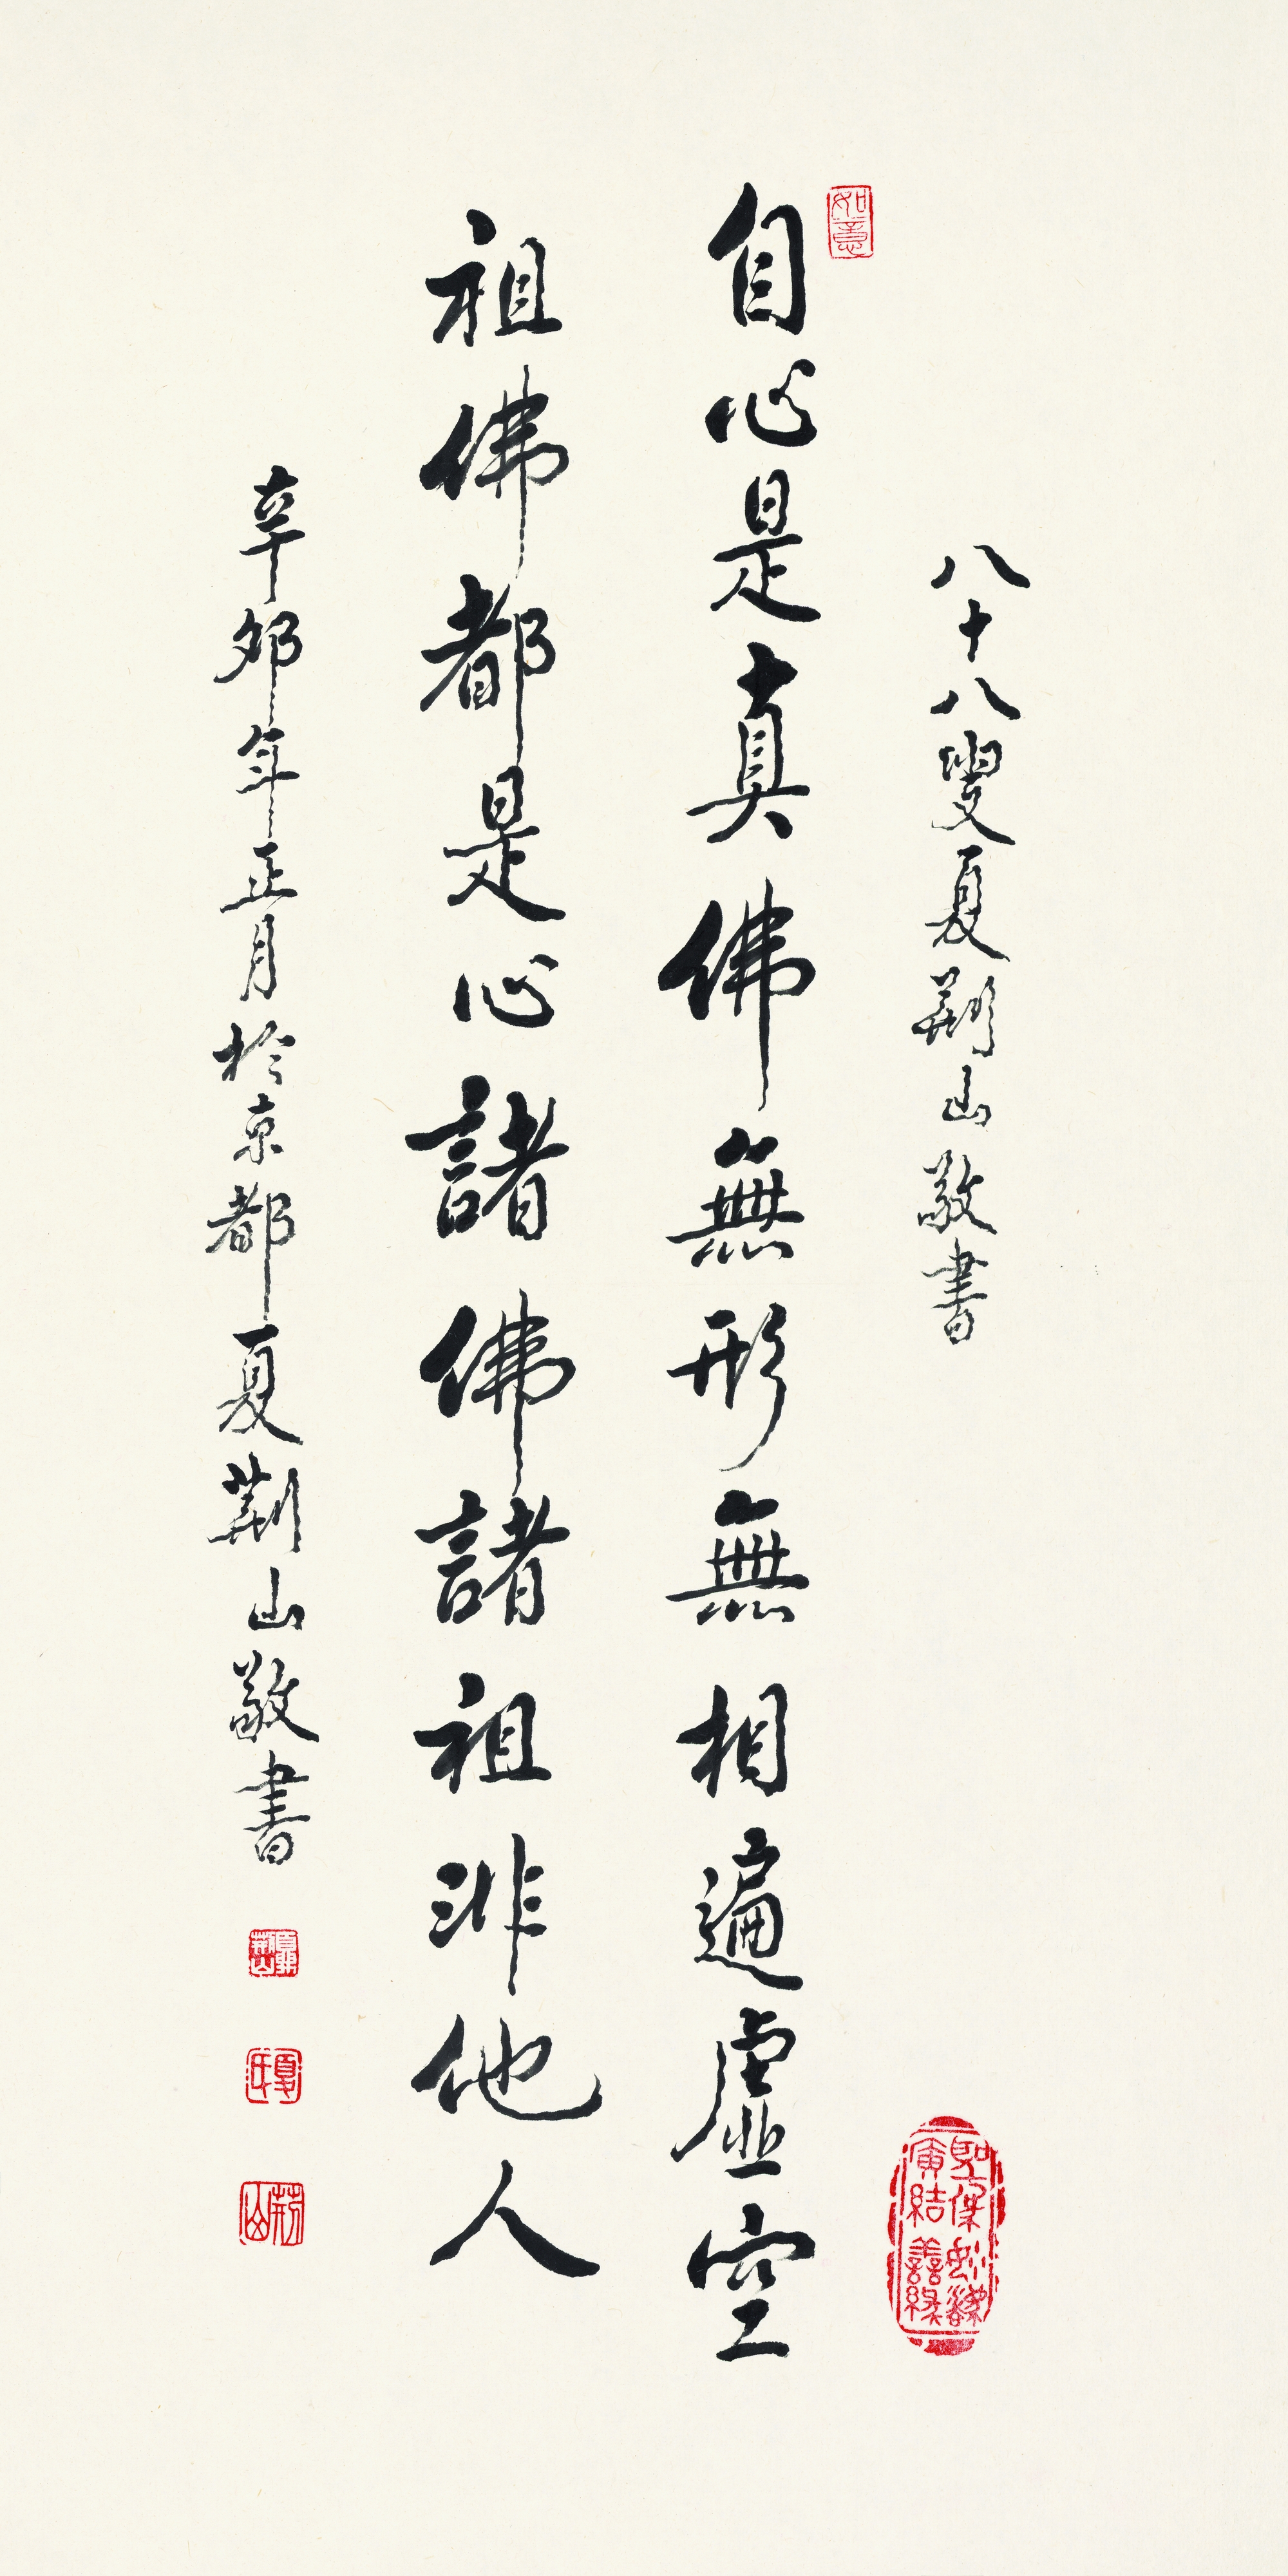 如意
八十八叟夏荆山敬書
自心是真佛無形無相遍虛空
祖佛都是心諸佛諸祖非他人
辛卯年正月於京都夏荆山敬書
夏氏
荆山